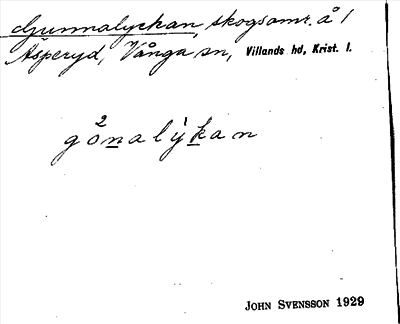 Gunnalyckan, skogsomr. å 1
Asperyd, Vånga sn, Villands hd, Krist. l.
2
gånalỳkan
JOHN SVENSSON 1929